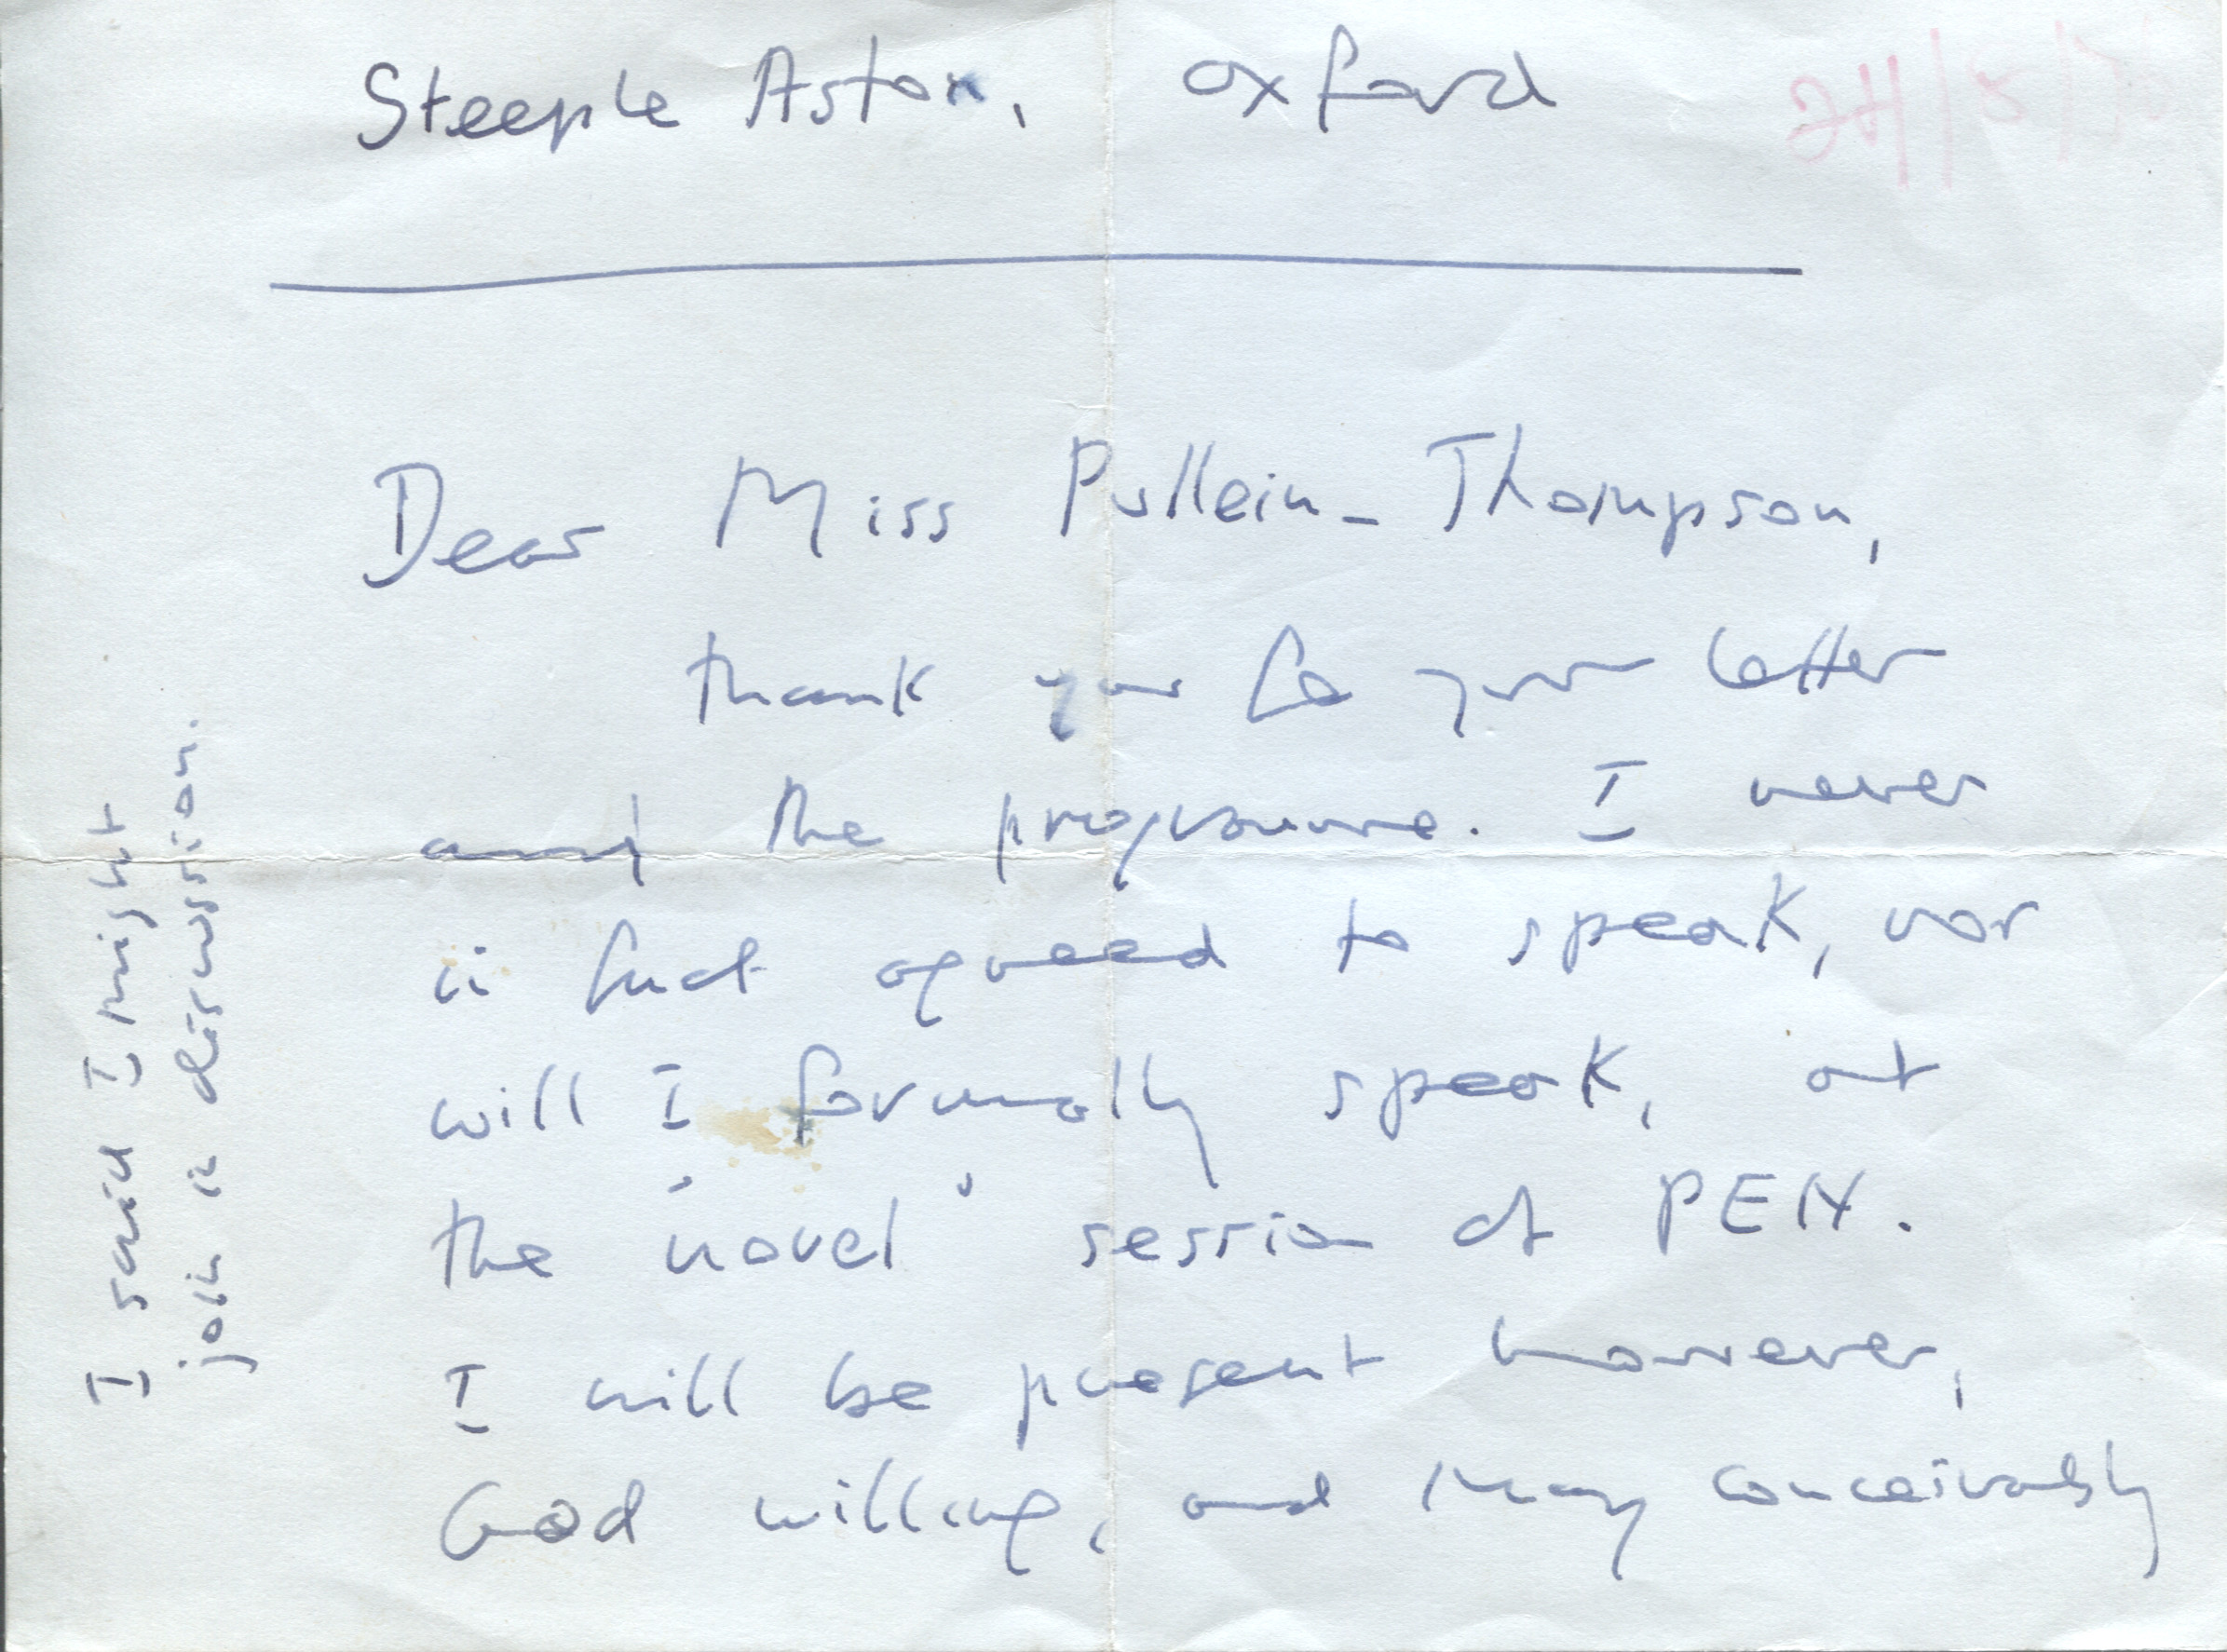 Steeple Aston, Oxford
Dear Miss Pullein-Thompson,
thank you for your letter
and the programme. I never
in fact agreed to speak, nor
will I formally speak, at
the 'novel' session of PEN.
I will be present however,
God willing, and may conceivably
I said I might
join in discussion.